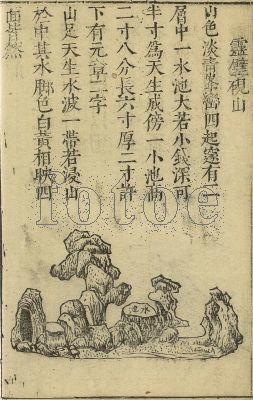 靈璧硯山
山色淡青峯巒四起有二
層中一水池大若小錢深可
半寸爲天生成傍一小池高
二寸八分長六寸厚二寸許
下有元章二字
山足天生水波一帶若浸山
於中其水脚色白黃相映四
面皆然
水池
fotoe